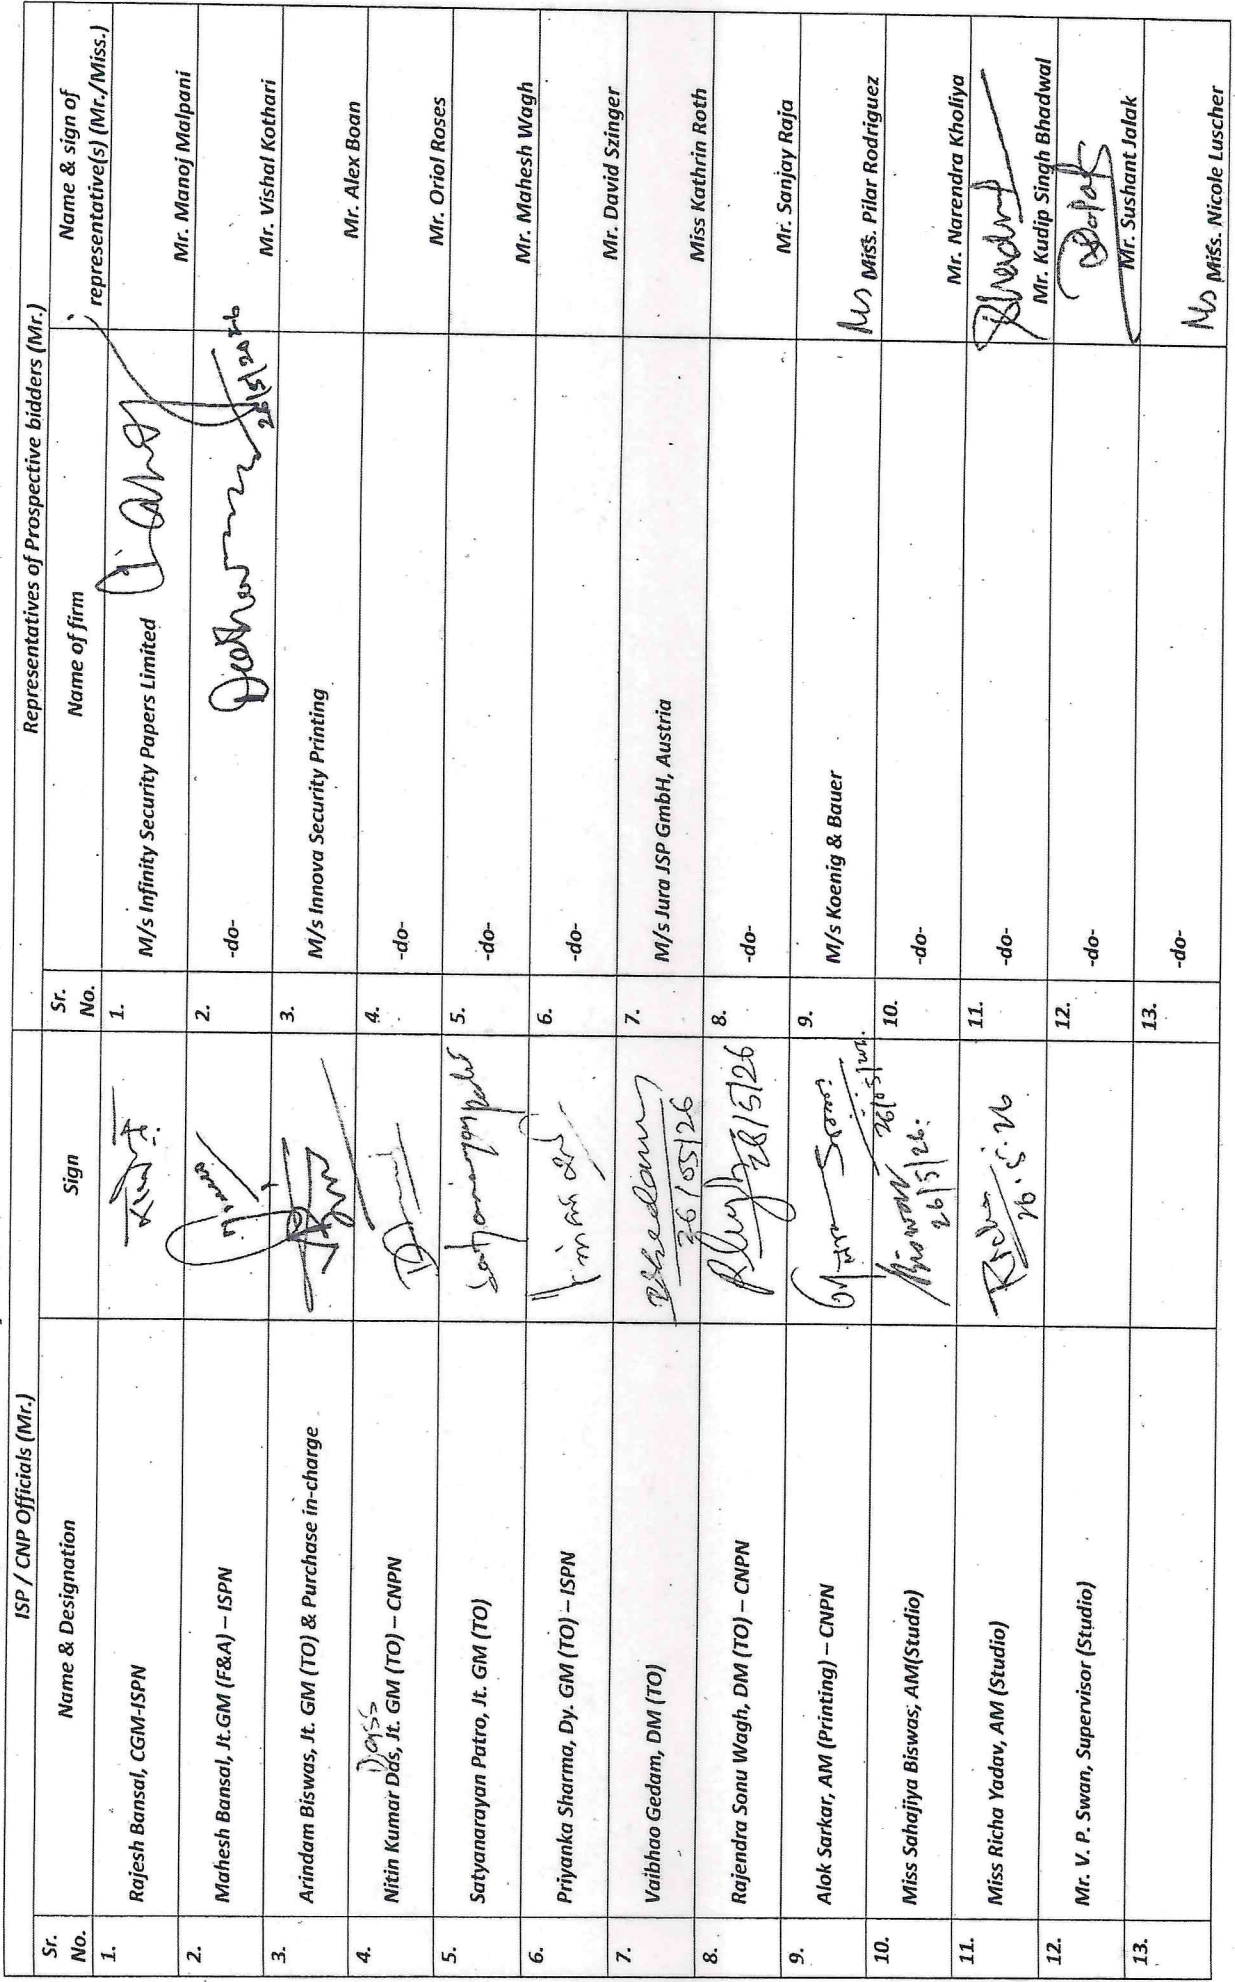 ISP / CNP Officials (Mr.)
Representatives of Prospective bidders (Mr.)
Sr. No.
Name & Designation
Sign
Sr. No.
Name of firm
Name & sign of representative(s) (Mr./Miss.)
1. Rajesh Bansal, CGM-ISPN
1. M/s Infinity Security Papers Limited
Mr. Manoj Malpani
2. Mahesh Bansal, Jt.GM (F&A) – ISPN
2. -do-
26/5/2026
Mr. Vishal Kothari
3. Arindam Biswas, Jt. GM (TO) & Purchase in-charge
3. M/s Innova Security Printing
Mr. Alex Boan
Dass
4. Nitin Kumar Das, Jt. GM (TO) – CNPN
4. -do-
Mr. Oriol Roses
5. Satyanarayan Patro, Jt. GM (TO)
5. -do-
Mr. Mahesh Wagh
6. Priyanka Sharma, Dy. GM (TO) – ISPN
6. -do-
Mr. David Szinger
7. Vaibhao Gedam, DM (TO)
26/05/26
7. M/s Jura JSP GmbH, Austria
Miss Kathrin Roth
8. Rajendra Sonu Wagh, DM (TO) – CNPN
8. -do-
Mr. Sanjay Raja
9. Alok Sarkar, AM (Printing) – CNPN
9. M/s Koenig & Bauer
Ms Miss. Pilar Rodriguez
10. Miss Sahajiya Biswas, AM(Studio)
Biswas
26/5/26.
10. -do-
Mr. Narendra Kholiya
11. Miss Richa Yadav, AM (Studio)
Richa
26.5.26
11. -do-
Mr. Kudip Singh Bhadwal
12. Mr. V. P. Swan, Supervisor (Studio)
12. -do-
Mr. Sushant Jalak
13.
13. -do-
Ms Miss. Nicole Luscher